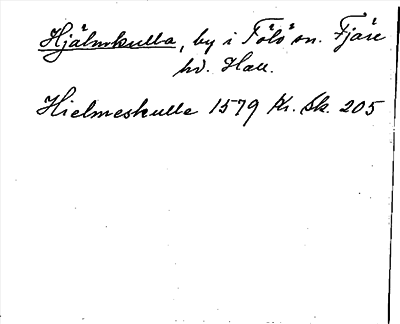 Hjälmkulla, by i Fölö sn. Fjäre
hd. Hall.
Hielmeskulle 1579 Kr. Sk. 205